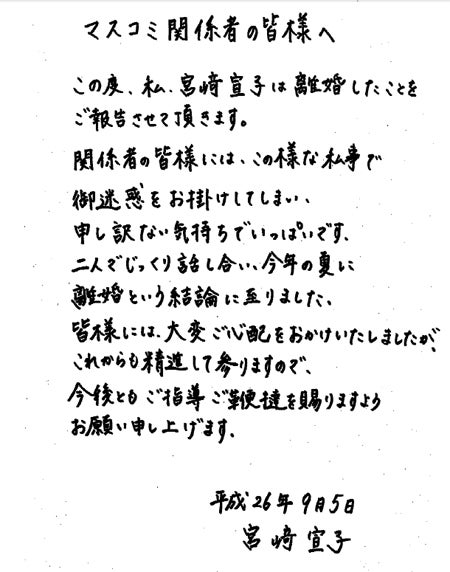 マスコミ関係者の皆様へ
この度、私、宮﨑宣子は離婚したことを
ご報告させて頂きます。
関係者の皆様には、この様な私事で
御迷惑をお掛けしてしまい、
申し訳ない気持ちでいっぱいです。
二人でじっくり話し合い、今年の夏に
離婚という結論に至りました。
皆様には、大変ご心配をおかけいたしましたが、
これからも精進して参りますので、
今後ともご指導ご鞭撻を賜りますよう
お願い申し上げます。
平成26年9月5日
宮﨑宣子